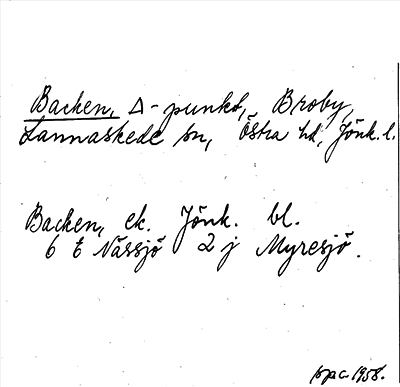 Backen, Δ-punkt, Broby,
Lannaskede sn, Östra hd, Jönk. l.
Backen, ek. Jönk. bl.
6 t Nässjö 2 j Myresjö.
1958.